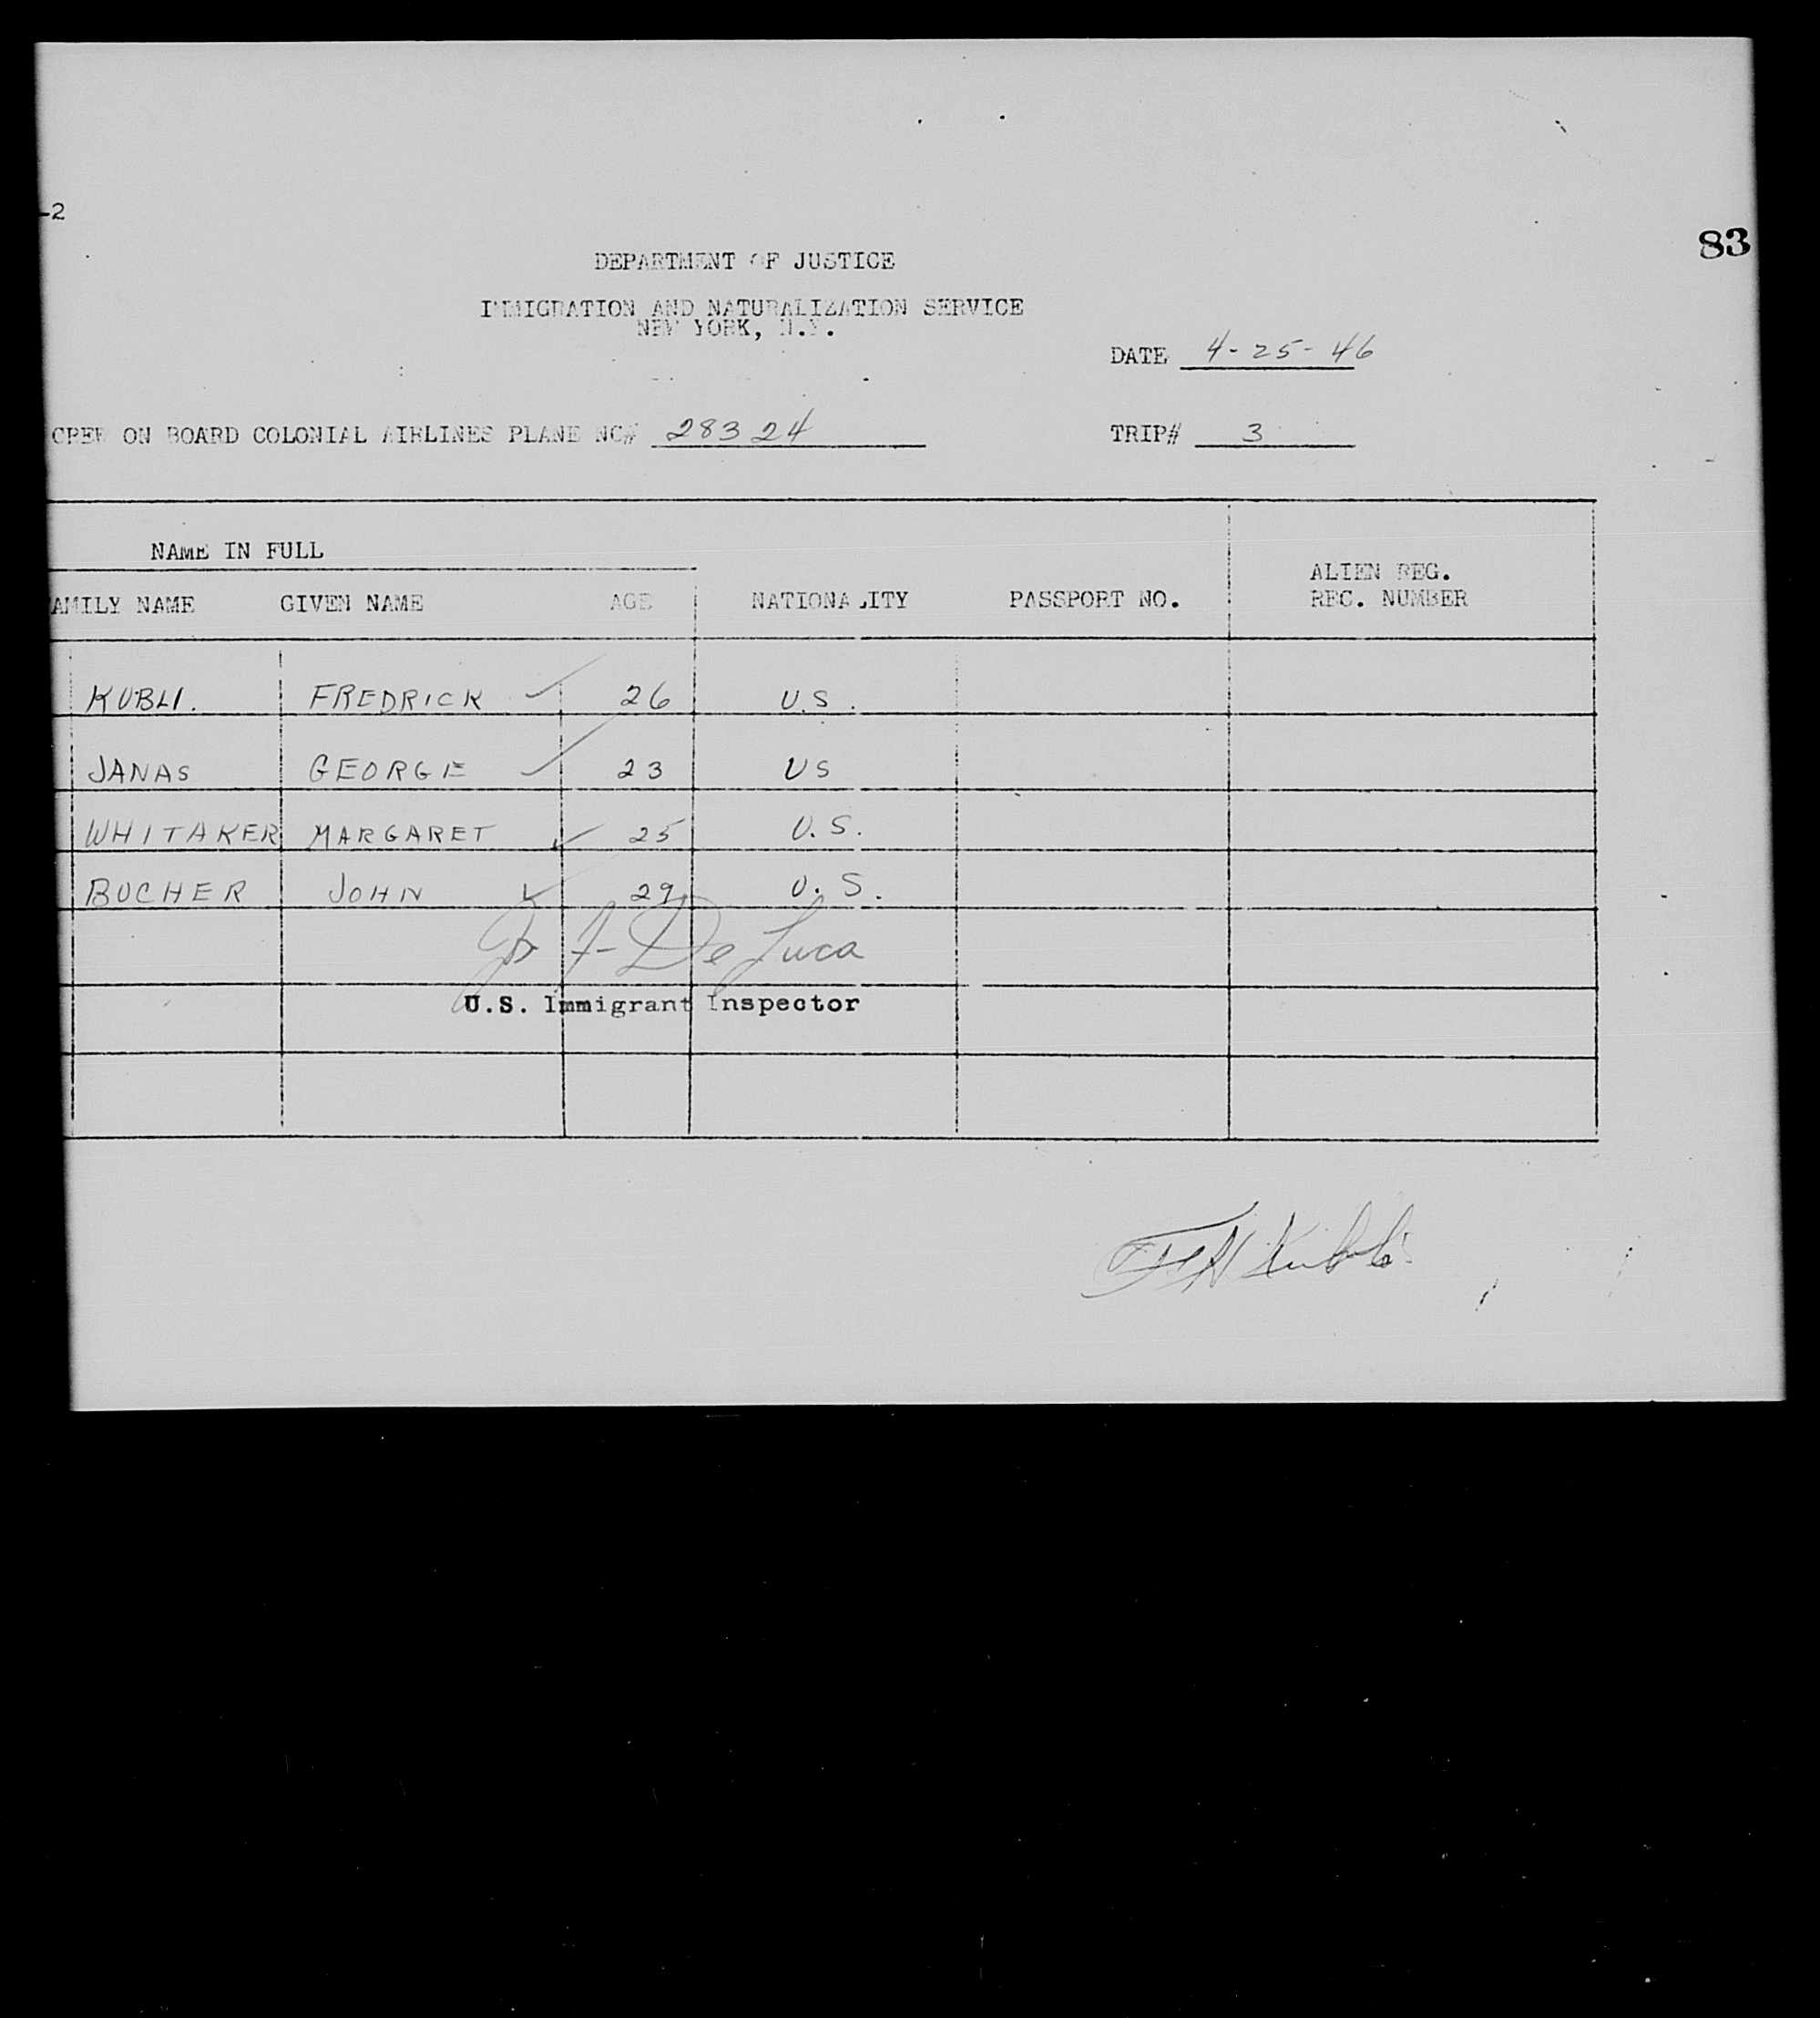 -2
83
DEPARTMENT OF JUSTICE
IMMIGRATION AND NATURALIZATION SERVICE
NEW YORK, N.Y.
DATE 4-25-46
CREW ON BOARD COLONIAL AIRLINES PLANE NC# 28324 TRIP# 3
NAME IN FULL
AMILY NAME GIVEN NAME AGE NATIONALITY PASSPORT NO. ALIEN REG. REC. NUMBER
KUBLI. FREDRICK ✓ 26 U.S.
JANAS GEORGE ✓ 23 US
WHITAKER MARGARET ✓ 25 U.S.
BUCHER JOHN ✓ 29 U.S.
De Luca
U.S. Immigrant Inspector
Kubli